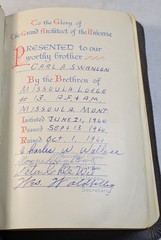 To the Glory of
The Grand Architect of the Universe
PRESENTED to our
worthy brother
CARL A SWANSON
By the Brethren of
MISSOULA LODGE
# 13. A.F. & A.M.
MISSOULA MONT
Initiated JUNE 21, 1960
Passed SEPT 13 1960
Raised OCT. 1, 1960
Charles W Wallace
Secretary